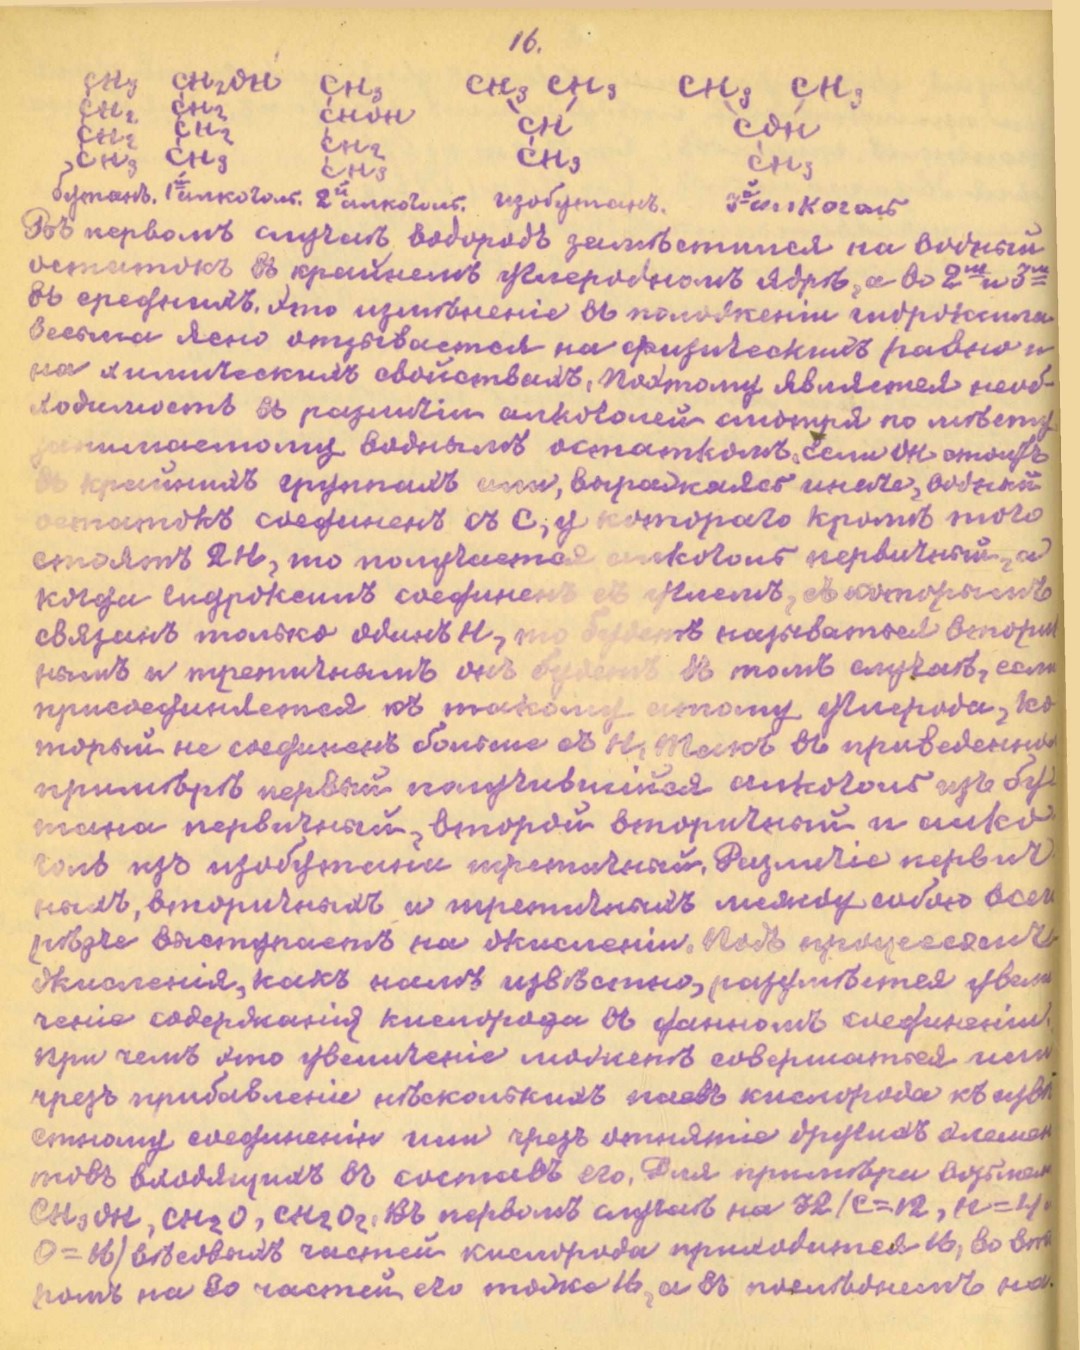 16.
CH₃ CH₂OH CH₃ CH₃ CH₃ CH₃ CH₃
CH₂ CH₂ CHOH CH COH
CH₂ CH₂ CH₂ CH₃ CH₃
CH₃ CH₃ CH₃
бутанъ. 1й алкоголь. 2й алкоголь. изобутанъ. 3й алкоголь
Въ первомъ случаѣ водородъ замѣстился на водный
остатокъ въ крайнемъ углеродномъ ядрѣ, а во 2мъ и 3мъ
въ среднихъ. Это измѣненіе въ положеніи гидроксила
весьма ясно отзывается на физическихъ равно и
на химическихъ свойствахъ. Поэтому является необ-
ходимость въ различіи алкоголей смотря по мѣсту
занимаемому воднымъ остаткомъ. Если OH стоитъ
въ крайнихъ группахъ или, выражаясь иначе, водный
остатокъ соединенъ съ C, у котораго кромѣ того
стоятъ 2H, то получается алкоголь первичный, а
когда гидроксилъ соединенъ съ углемъ, съ которымъ
связанъ только одинъ H, то будетъ называться вторич
нымъ и третичнымъ онъ будетъ въ томъ случаѣ, если
присоединяется къ такому атому углерода, ко
торый не соединенъ больше съ H. Такъ въ приведенно
примѣрѣ первый получившійся алкоголь изъ бу
тана первичный, второй вторичный и алко
голь изъ изобутана третичный. Различіе первич
ныхъ, вторичныхъ и третичныхъ между собою всего
рѣзче выступаетъ на окисленіи. Подъ процессомъ
окисленія, какъ намъ извѣстно, разумѣется увели
ченіе содержанія кислорода въ данномъ соединеніи.
При чемъ это увеличеніе можетъ совершаться или
чрезъ прибавленіе нѣсколькихъ паевъ кислорода къ извѣ
стному соединенію или чрезъ отнятіе другихъ элемен
товъ входящихъ въ составъ его. Для примѣра возьмемъ
CH₃OH, CH₂O, CH₂O₂. Въ первомъ случаѣ на 32 (C=12, H=4,
O=16) вѣсовыхъ частей кислорода приходится 16, во вто
ромъ на 30 частей его тоже 16, а въ послѣднемъ на